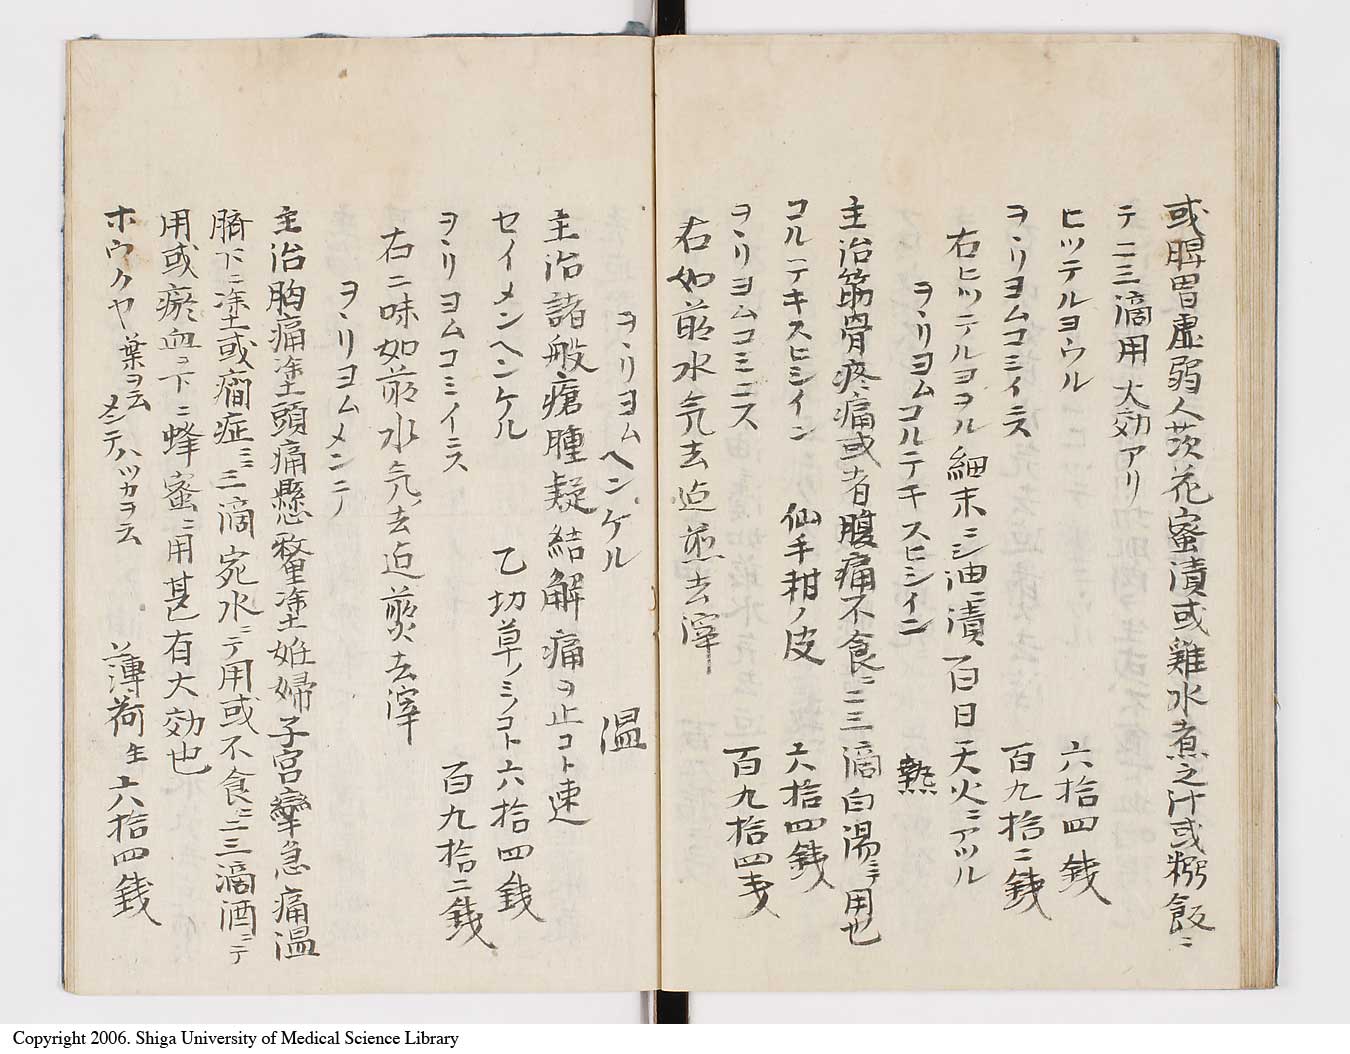 或脾胃虚弱人茨花蜜漬或雞水煮之汁或粥飯ニ
テ二三滴用大効アリ
ヒツテルヨウル 六拾四銭
ヲヽリヨムコミイニス 百九拾二銭
右ヒツテルヨヲル細末ニシ油ニ漬百日天火ニアツル
ヲヽリヨムコルテキスヒシイン 熱
主治筋骨疼痛或者腹痛不食ニ二三滴白湯ニテ用也
コルヽテキスヒシイン 仙手柑ノ皮 六拾四銭
ヲヽリヨムコミニス 百九拾四
右如前水気去迄煎去滓
ヲヽリヨムヘンケル 温
主治諸般瘡腫疑結解痛ヲ止コト速
セイメンヘンケル 乙切草ノミノコト六拾四銭
ヲヽリヨムコミイニス 百九拾二銭
右二味如前水気去迄煎去滓
ヲヽリヨムメンニ
主治胸痛塗土頭痛懸塗土妊婦子宮攣急痛温
臍下ニ塗土或癇症ニ三滴宛水ニテ用或不食ニ二三滴酒ニテ
用或瘀血ヲ下ニ蜂蜜ニ用甚有大効也
ホウクヤ 葉ヲ云 メンテハツカヲ云 薄荷 生 六拾四銭